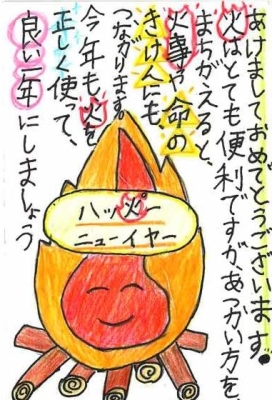 あけましておめでとうございます。
火はとても便利ですが、あつかい方を
まちがえると、
火事や命の
きけんにも
つながります。
今年も火を
正しく使って、
良い一年にしましょう
ハッ火ピー
ニューイヤー